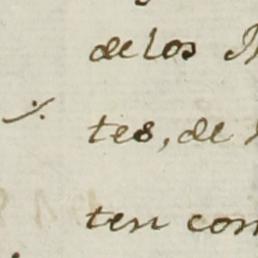 de los
tes, de
ten con